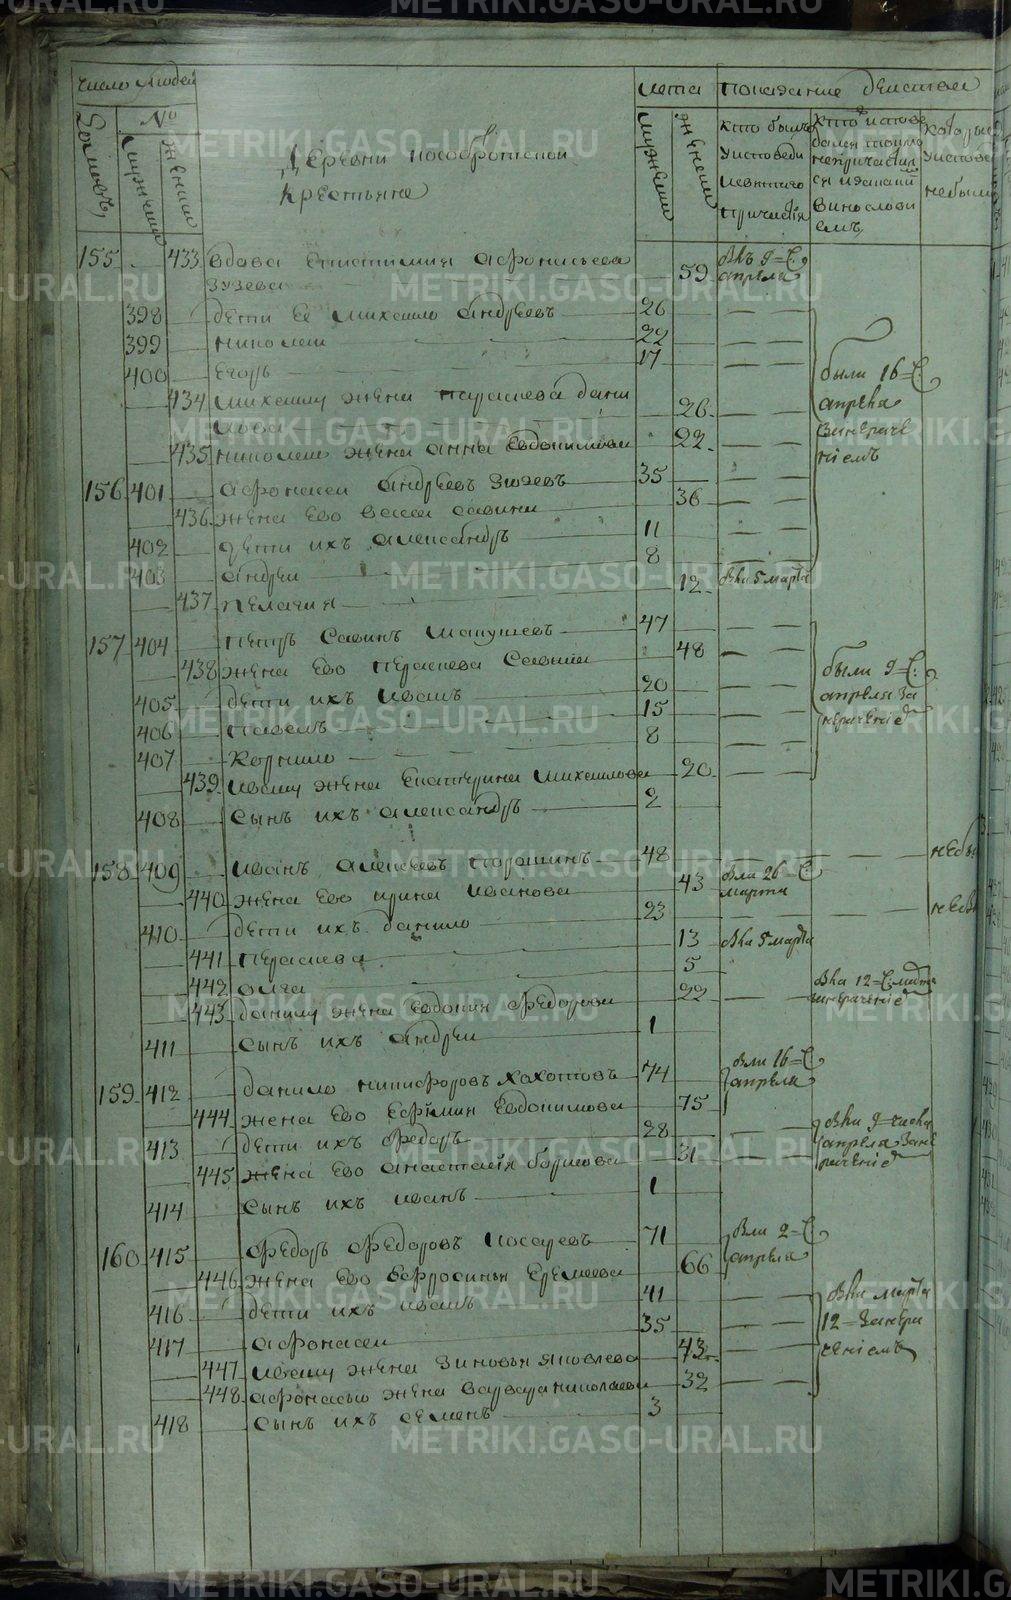 число людей
№
домовъ,
мужеска
женска
Деревни Новобротской
Крестьяне
лета
мужеска
женска
показание действа
кто былъ
у исповеди
и святаго
причастія
кто испове
не причастил
ся и за каки
винослови
емъ,
которые
у испове
не были
155 433 вдова Епистимия Афонасьева 59 Вли 9=Е
Зузева апреля
398 дети ее михаило андреевъ 26
399 николаи 22
400 Егоръ 17
были 16=Е
апреля
за нераче
ніемъ
434 михаилу жена парасковa дани 26
лова
435 николаю жена анна Евдокимова 22
156 401 афонасеи андреевъ Зюзевъ 35
436 жена Ево васса савина 36
402 дети ихъ александръ 11
403 андреи 8
437 пелагия 12 Вли 5 марта
157 404 петръ Савинъ 47
438 жена Ево параскева Савина 48
были 9=Е
апреля за
нерачение
405 дети ихъ иванъ 20
406 павелъ 15
407 Корнило 8
439 ивану жена Екатерина михаилова 20
408 сынъ ихъ александръ 2
158 409 иванъ алексеевъ порошинъ 48 небы
440 жена Ево ирина иванова 43 Вли 26=Е
марта
410 дети ихъ данило 23 небы
441 параскева 13 Вли 5 марта
442 олга 5
443 данилу жена евдокия федорова 22 Вли 12=Е марта
за нерачение
411 сынъ ихъ андреи 1
159 412 данило никифоровъ хохотовъ 74 Вли 16=Е
апреля
444 жена Ево Ефимия Евдокимова 75
413 дети ихъ федоръ 28 Вли 9=числа
апреля за не
рачение
445 жена Ево анастасія борисова 31
414 сынъ ихъ иванъ 1
160 415 федоръ федоровъ косаревъ 71 Вли 2=Е
апреля
446 жена Ево Ефросинья Еремеева 66
416 дети ихъ иванъ 41 Вли марта
12=за нера
чениемъ
417 афонасеи 35
447 ивану жена Зиновья яковлева 43
448 афонасью жена варвара николаева 32
418 сынъ ихъ семенъ 3
METRIKI.GASO-URAL.RU